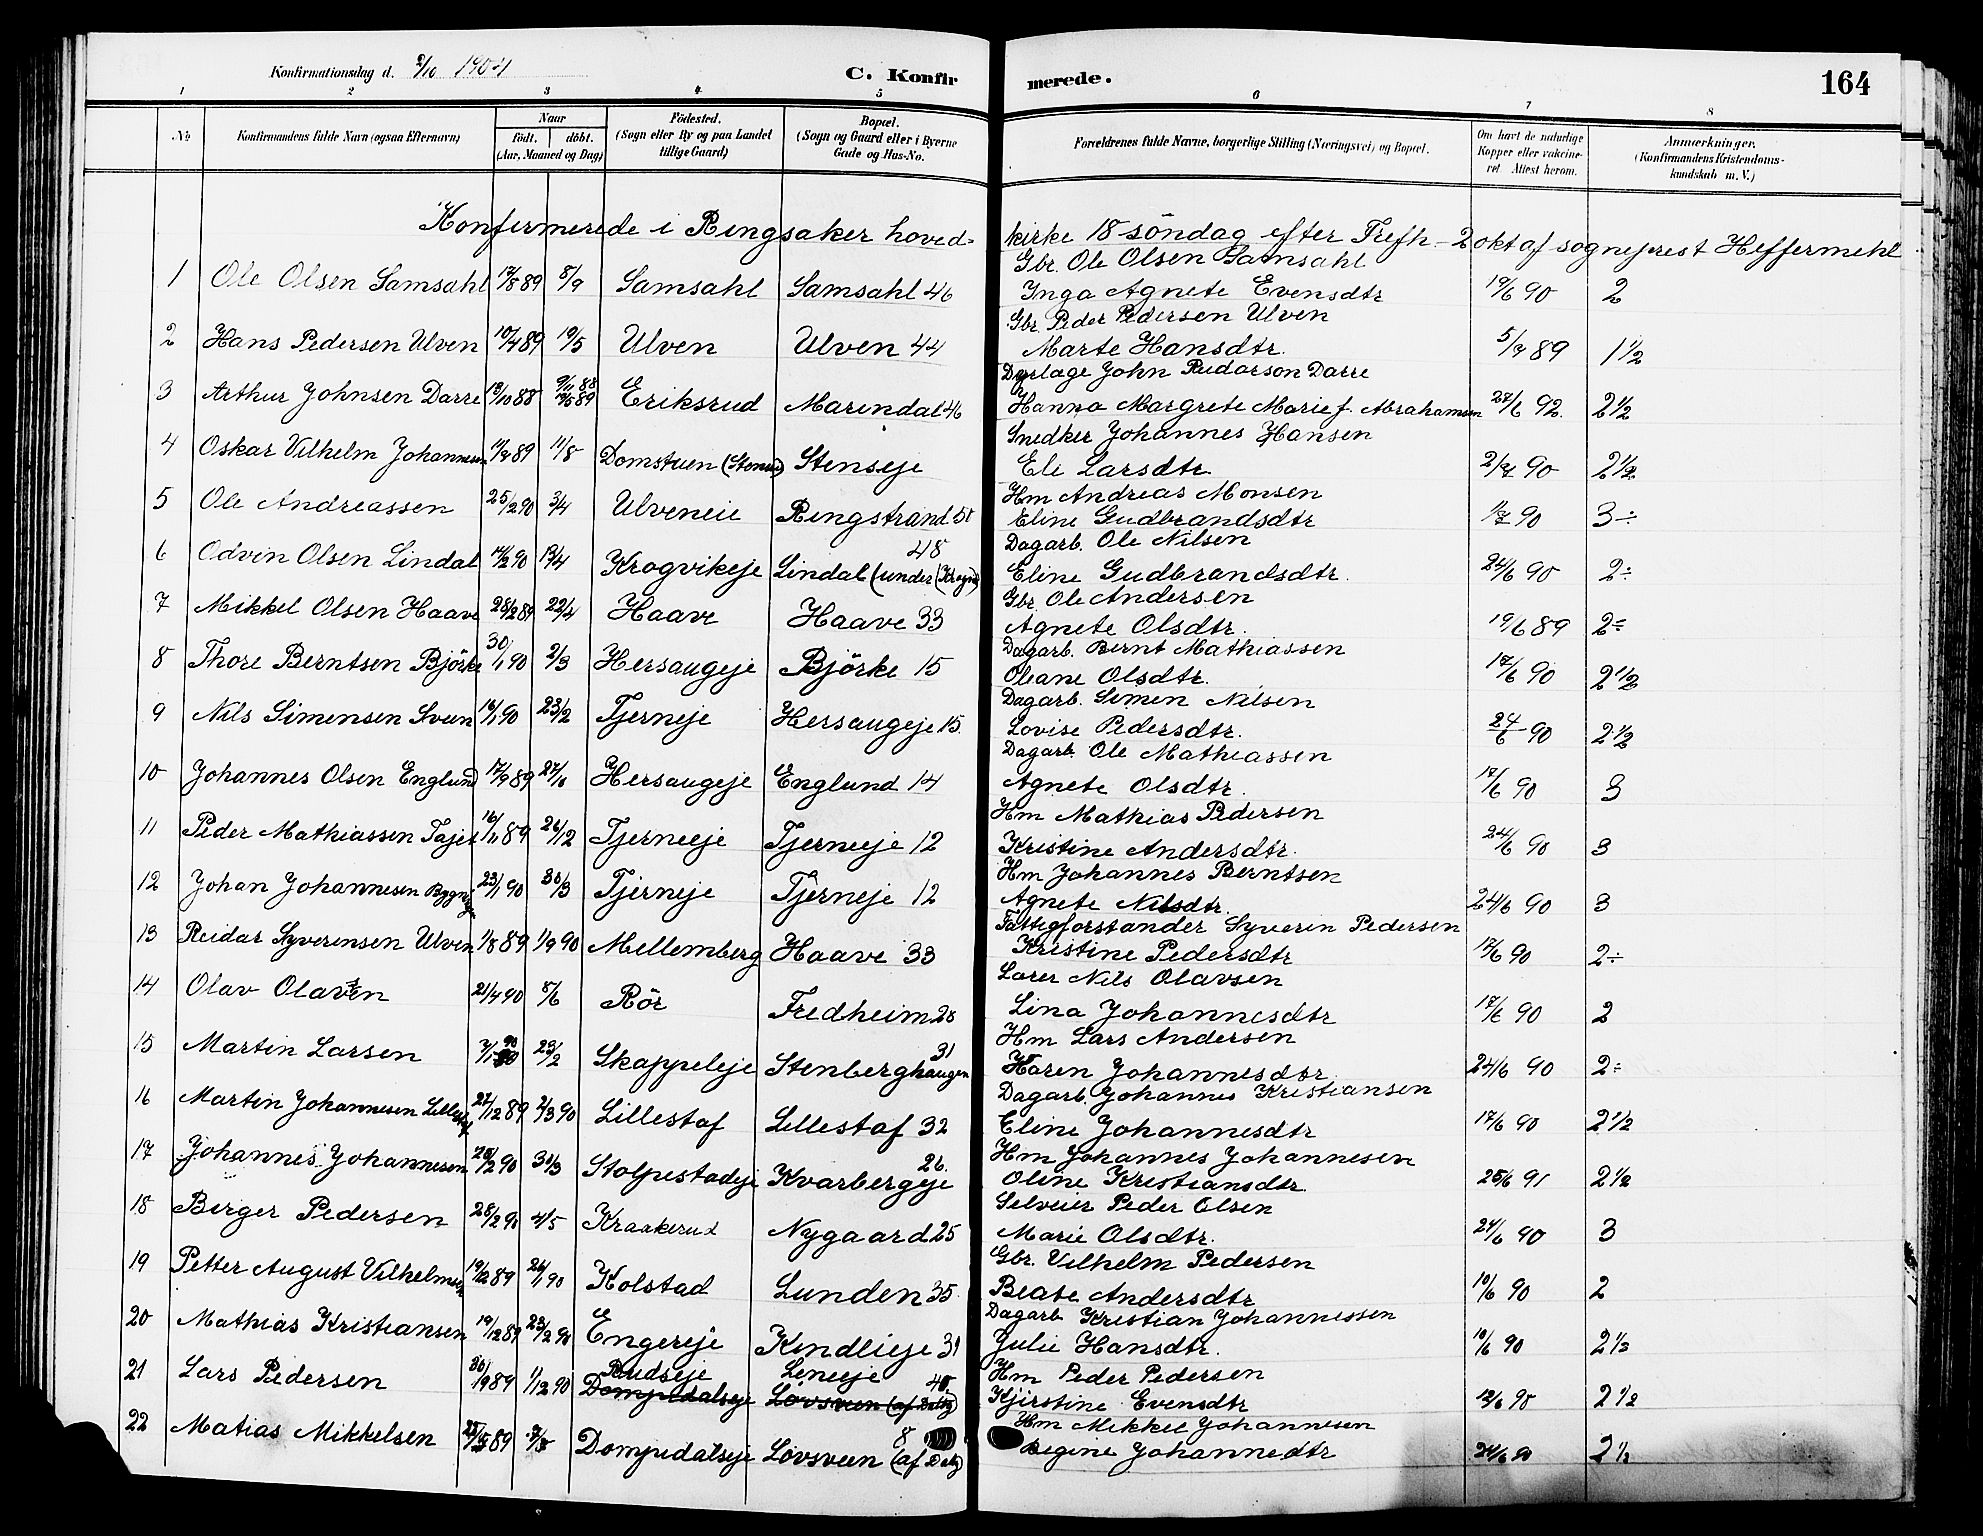 Konfirmationsdag d. 2/10 1904
C. Konfirmerede.
164
1 2 3 4 5 6 7 8
No. Konfirmandens fulde Navn (ogsaa Efternavn) Naar født. døbt. (Aar, Maaned og Dag) Fødested. (Sogn eller By og paa Landet tillige Gaard) Bopæl. (Sogn og Gaard eller i Byerne Gade og Hus-No. Forældrenes fulde Navne, borgerlige Stilling (Næringsvei) og Bopæl. Om havt de naturlige Kopper eller vakcineret. Attest herom. Anmærkninger. (Konfirmandens Kristendomskundskab m. V.)
Konfirmerede i Ringsaker hovedkirke 18 söndag efter Trefh - 2 okt af sogneprest Heffermehl
1 Ole Olsen Samsahl 17/8 89 8/9 Samsahl Samsahl 46 Gbr. Ole Olsen Samsahl
Inga Agnete Evensdtr 19/6 90 2
2 Hans Pedersen Ulven 10/4 89 19/5 Ulven Ulven 44 Gbr. Peder Pedersen Ulven
Marte Hansdtr. 5/7 89 1 1/2
3 Arthur Johnsen Darre 12/10 88 Eriksrud Marendal 46 Dyrlæge John Pedersen Darre
Hanna Margrete Marie f. Abrahamsen 27/6 92. 2 1/2
4 Oskar Vilhelm Johannesen 11/7 89 11/8 Domstuen Stenseje Snedker Johannes Hansen
Ele Larsdtr. 2/7 90 2 1/2
5 Ole Andreassen 25/2 90 3/4 Ulveneie Ringstrand 50 Hm Andreas Monsen
Eline Gudbrandsdtr 1/7 90 3 ÷
6 Odvin Olsen Lindal 14/2 90 13/4 Krogvikeje Lindal (under 48 Dagarb. Ole Nilsen
Eline Gudbrandsdtr. 24/6 90 2 ÷
7 Mikkel Olsen Haave 28/2 89 22/4 Haave Haave 33 Gbr. Ole Andersen
Agnete Olsdtr. 19/6 89 2 ÷
8 Thore Berntsen Björke 30/1 90 2/3 Hersaugeje Björke 15 Dagarb. Bernt Mathiassen
Oleane Olsdtr. 17/6 90 2 1/2
9 Nils Simensen Sveen 16/1 90 23/2 Tjerneje Hersaugeje 15. Dagarb. Simen Nilsen
Lovise Pedersdtr. 24/6 90 2 1/2
10 Johannes Olsen Englund 17/9 89 27/10 Hersaugeje Englund 14 Dagarb. Ole Mathiassen
Agnete Olsdtr. 17/6 90 3
11 Peder Mathiassen Tajet 16/11 89 26/12 Tjerneeje Tjerneeje 12 Hm Mathias Pedersen
Kristine Andersdtr. 24/6 90 3
12 Johan Johannesen 23/1 90 30/3 Tjerneje Tjerneje 12 Hm Johannes Berntsen
Agnete Nilsdtr. 24/6 90 3
13 Reidar Syverensen Ulven 1/8 89 1/9 90 Mellemberg Haave 33 Fattigforstander Syverin Pedersen
Kristine Pedersdtr 17/6 90 2 ÷
14 Olav Olavsen 21/4 90 8/6 Rör Fredheim 28 Lærer Nils Olavsen
Lina Johannesdtr 17/6 90 2
15 Martin Larsen 7/1 90 23/2 Skappeleje Stenberghaugen 31 Hm Lars Andersen
Karen Johannesdtr 24/6 90 2 ÷
16 Martin Johannesen Lillestaf 27/12 89 2/3 90 Lillestaf Lillestaf 32 Dagarb. Johannes Kristiansen
Eline Johannesdtr 17/6 90 2 1/2
17 Johannes Johannesen 20/2 90 31/3 Stolpestadeje Kvarbergeje 26. Hm Johannes Johannesen
Oline Kristiansdtr. 25/6 91 2 1/2
18 Birger Pedersen 28/2 90 4/5 Kraakerud Nygaard 25 Selveier Peder Olsen
Marie Olsdtr. 24/6 90 3
19 Petter August Vilhelmsen 19/12 89 26/1 90 Kolstad Lunden 35. Gbr. Vilhelm Pedersen
Beate Andersdtr 10/6 90 2
20 Mathias Kristiansen 19/12 89 23/2 90 Engereje Kindlieje 31 Dagarb. Kristian Johannessen
Julie Hansdtr. 10/6 90 2 1/2
21 Lars Pedersen 30/9 89 1/12 90 Rudseje Leneeje 40 Hm Peder Pedersen
Dompedalseje Lövsveen Kjirstine Evensdtr 12/6 90 2 1/2
22 Matias Mikkelsen 89 Dompedalseje Lövsveen 8 Hm Mikkel Johannesen
Regine Johannedtr 24/6 90 2 1/2